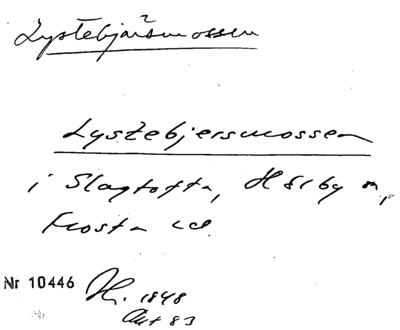 Lystebjärsmossen
Lystebjersmossen
i Slagtofta, Hörby n,
Frosta hd.
Nr 10446 H. 1848
Akt 83